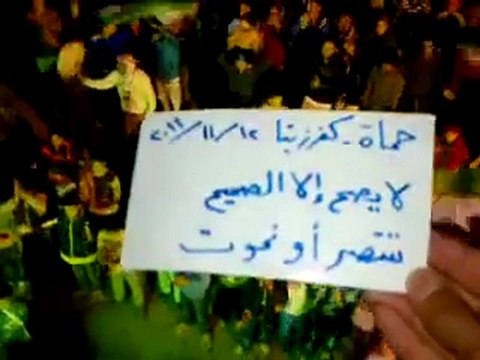 حماة - كفرزيتا ٢٠١١/١١/١٢
لا يصح إلا الصحيح
ننتصر أو نموت